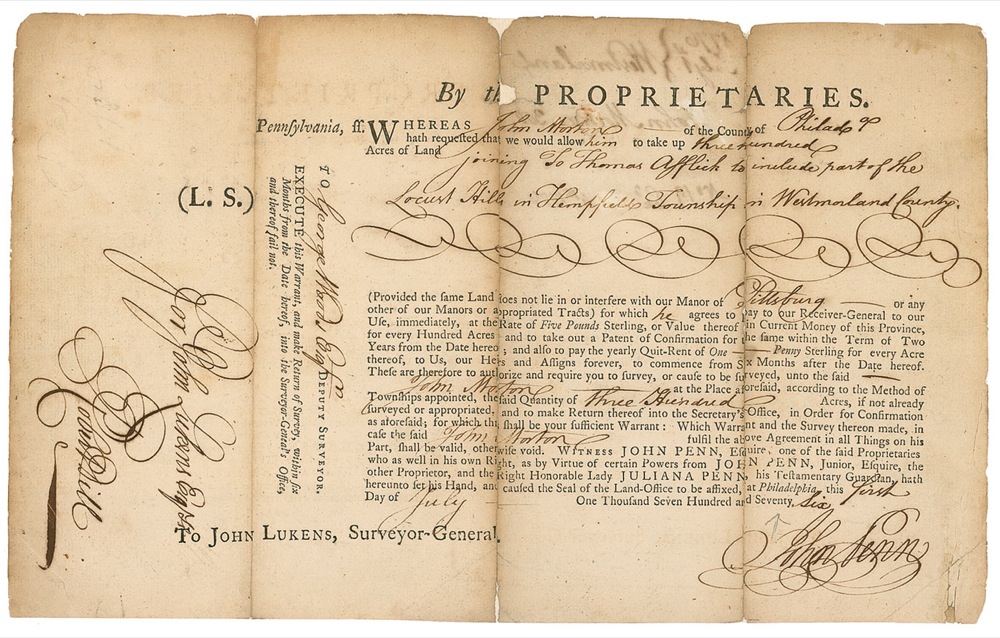 By the PROPRIETARIES.
Pennsylvania, ss. WHEREAS John Morton of the County of Philada
hath requested that we would allow him to take up three hundred
Acres of Land joining To Thomas Afflick to include part of the
Locust Hills in Hempfield Township in Westmorland County.
(L. S.)
(Provided the same Land does not lie in or interfere with our Manor of Pittsburg or any
other of our Manors or appropriated Tracts) for which he agrees to pay to our Receiver-General to our
Use, immediately, at the Rate of Five Pounds Sterling, or Value thereof in Current Money of this Province,
for every Hundred Acres; and to take out a Patent of Confirmation for the same within the Term of Two
Years from the Date hereof; and also to pay the yearly Quit-Rent of One Penny Sterling for every Acre
thereof, to Us, our Heirs and Assigns forever, to commence from Six Months after the Date hereof.
These are therefore to authorize and require you to survey, or cause to be surveyed, unto the said
John Morton at the Place aforesaid, according to the Method of
Townships appointed, the said Quantity of three Hundred Acres, if not already
surveyed or appropriated, and to make Return thereof into the Secretary's Office, in Order for Confirmation
as aforesaid; for which this shall be your sufficient Warrant: Which Warrant and the Survey thereon made, in
case the said John Morton fulfil the above Agreement in all Things on his
Part, shall be valid, otherwise void. WITNESS JOHN PENN, Esquire, one of the said Proprietaries
who as well in his own Right, as by Virtue of certain Powers from JOHN PENN, Junior, Esquire, the
other Proprietor, and the Right Honorable Lady JULIANA PENN, his Testamentary Guardian, hath
hereunto set his Hand, and caused the Seal of the Land-Office to be affixed, at Philadelphia, this first
Day of July One Thousand Seven Hundred and Seventy Six
To JOHN LUKENS, Surveyor-General.
John Penn
TO George Wood Esqr DEPUTY SURVEYOR.
EXECUTE this Warrant, and make Return of Survey, within six
Months from the Date hereof, into the Surveyor-General's Office,
and thereof fail not.
For John Lukens Esqr